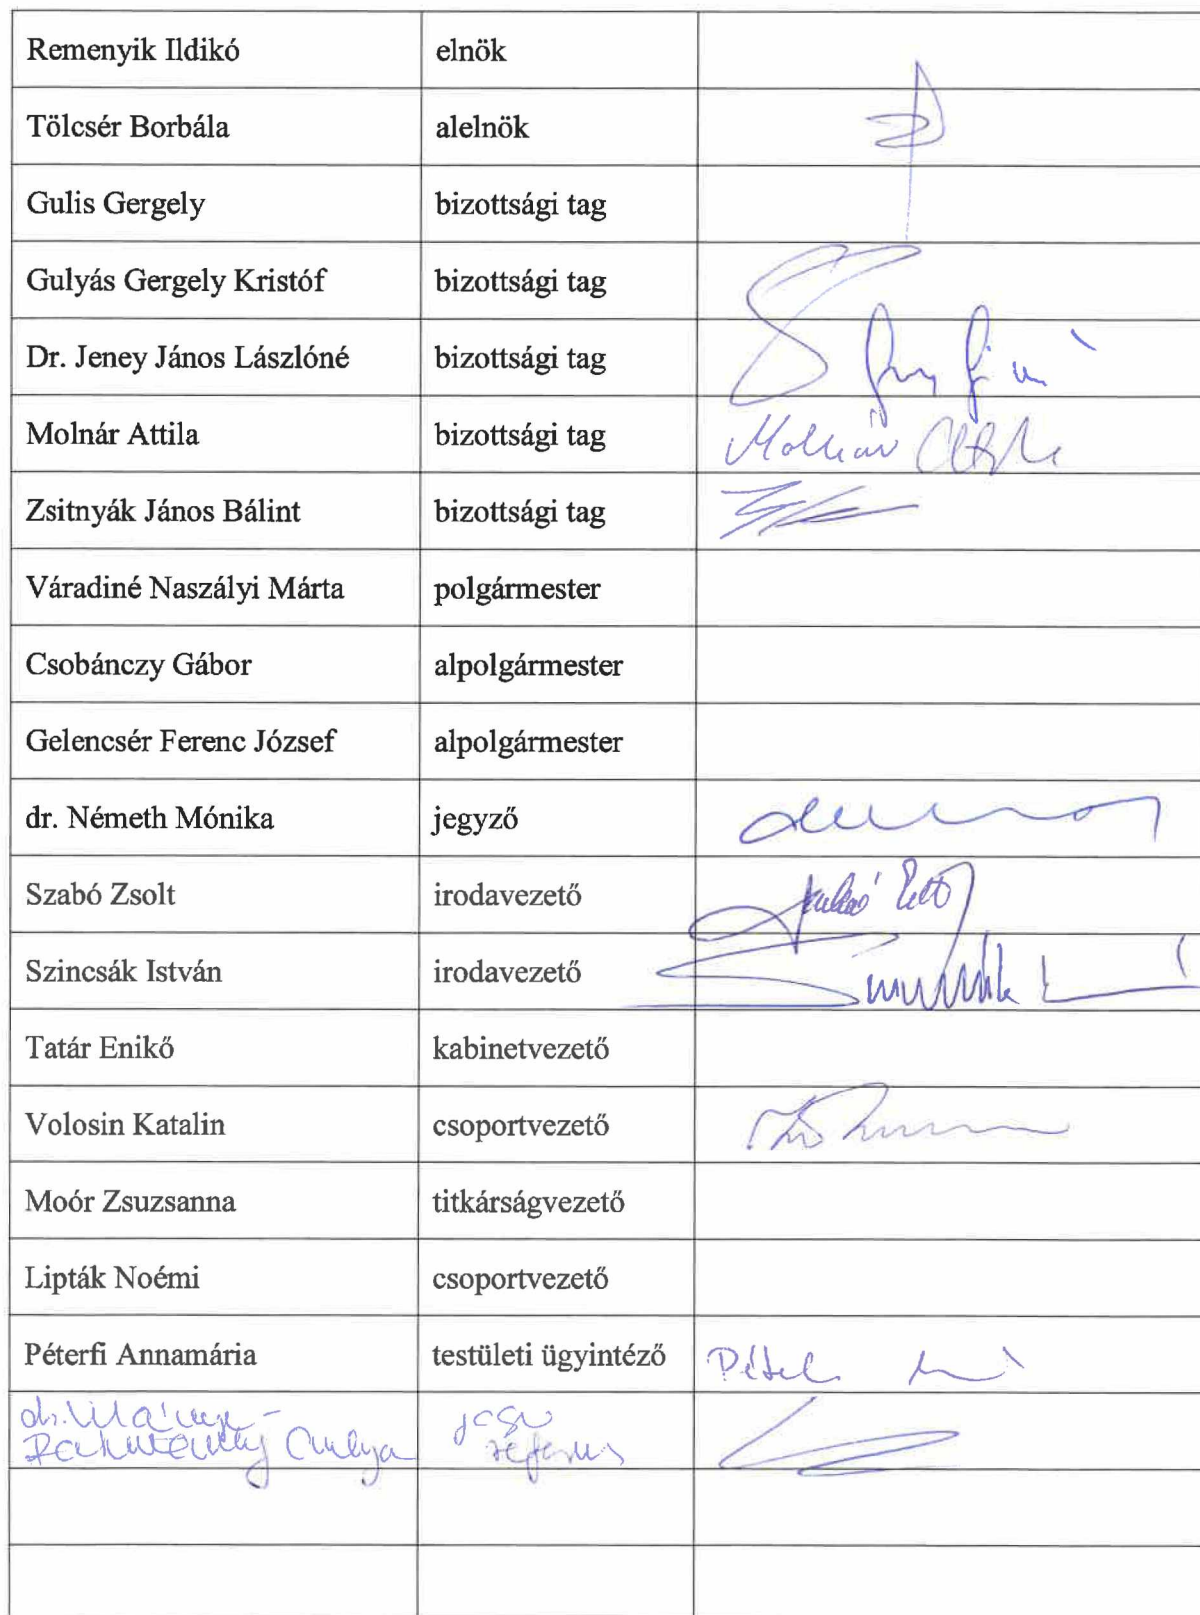 Remenyik Ildikó elnök
Tölcsér Borbála alelnök
Gulis Gergely bizottsági tag
Gulyás Gergely Kristóf bizottsági tag
Dr. Jeney János Lászlóné bizottsági tag
Molnár Attila bizottsági tag Molnár Attila
Zsitnyák János Bálint bizottsági tag
Váradiné Naszályi Márta polgármester
Csobánczy Gábor alpolgármester
Gelencsér Ferenc József alpolgármester
dr. Németh Mónika jegyző
Szabó Zsolt irodavezető
Szincsák István irodavezető
Tatár Enikő kabinetvezető
Volosin Katalin csoportvezető
Moór Zsuzsanna titkárságvezető
Lipták Noémi csoportvezető
Péterfi Annamária testületi ügyintéző
dr.